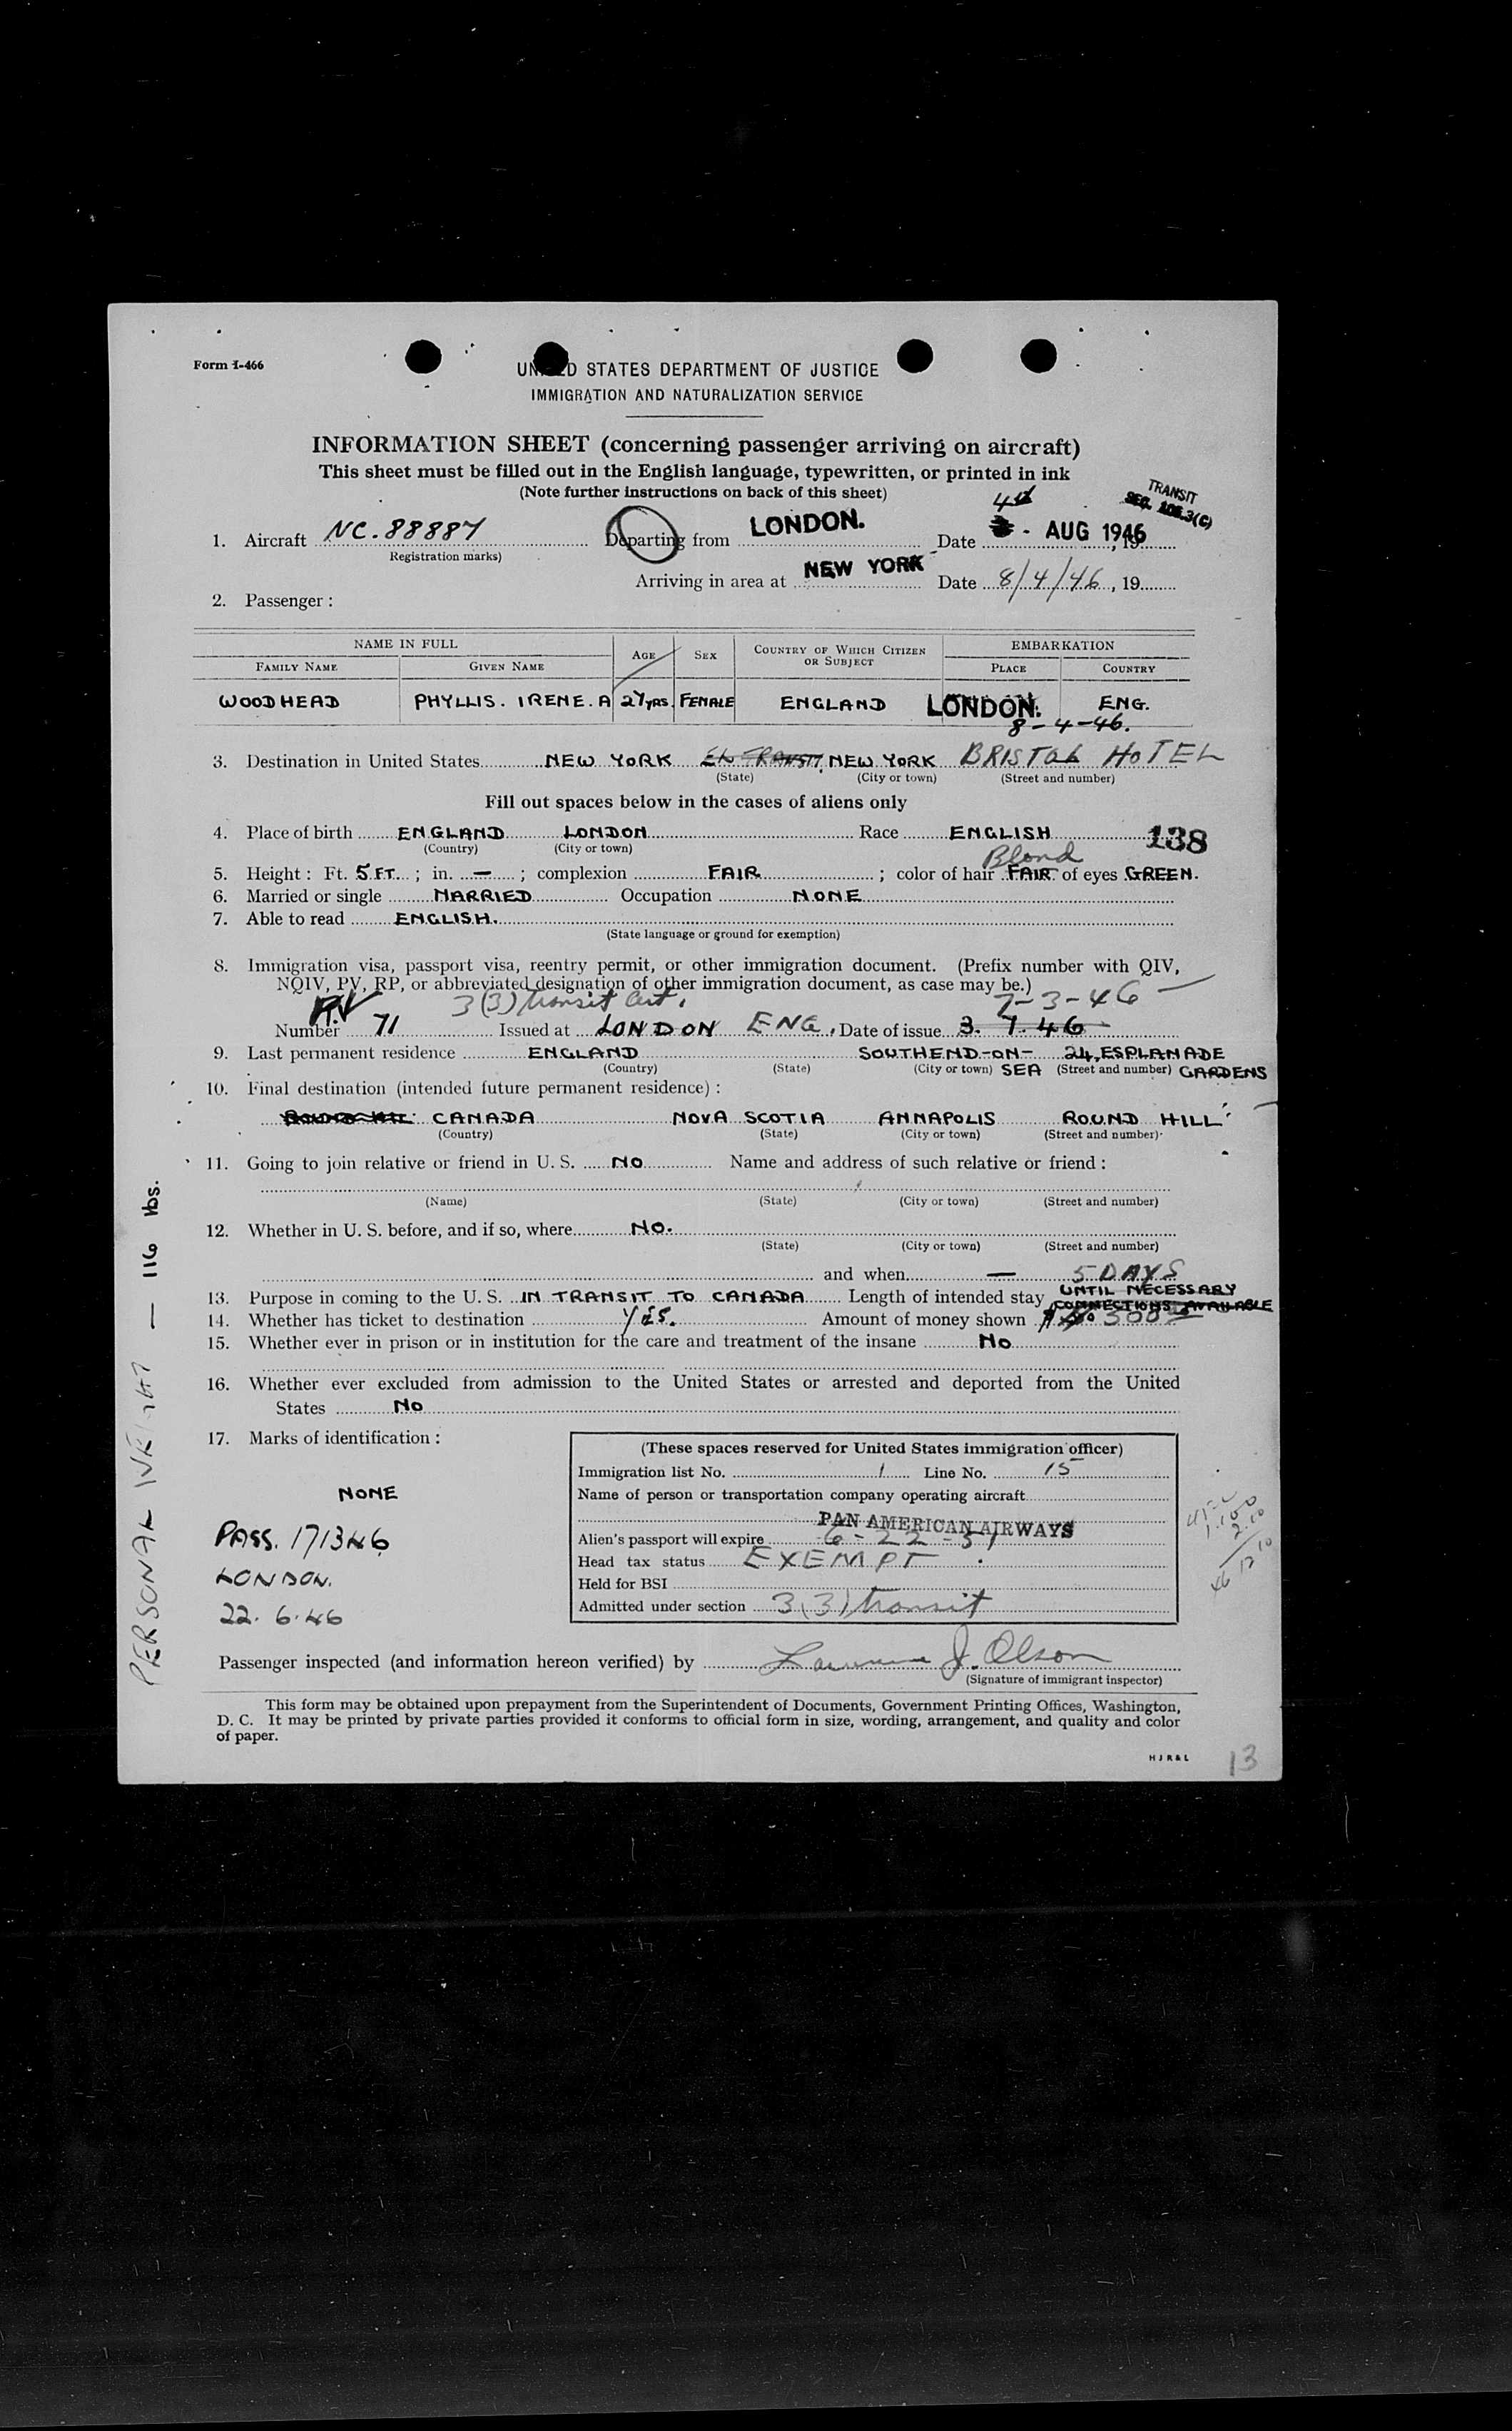 Form I-466
UNITED STATES DEPARTMENT OF JUSTICE
IMMIGRATION AND NATURALIZATION SERVICE
INFORMATION SHEET (concerning passenger arriving on aircraft)
This sheet must be filled out in the English language, typewritten, or printed in ink
(Note further instructions on back of this sheet)
TRANSIT
SEC. 105.3(C)
4th
1. Aircraft NC.88887 Departing from LONDON. Date 3 - AUG 1946, 19
Registration marks)
Arriving in area at NEW YORK Date 8/4/46, 19
2. Passenger:
NAME IN FULL AGE SEX COUNTRY OF WHICH CITIZEN OR SUBJECT EMBARKATION
FAMILY NAME GIVEN NAME PLACE COUNTRY
WOODHEAD PHYLLIS. IRENE. A 27 YRS FEMALE ENGLAND LONDON. ENG.
8-4-46.
3. Destination in United States NEW YORK EN TRANSIT, NEW YORK BRISTOL HOTEL
(State) (City or town) (Street and number)
Fill out spaces below in the cases of aliens only
4. Place of birth ENGLAND LONDON Race ENGLISH 138
(Country) (City or town)
Blond
5. Height: Ft. 5 FT. ; in. — ; complexion FAIR ; color of hair FAIR of eyes GREEN.
6. Married or single MARRIED Occupation NONE
7. Able to read ENGLISH.
(State language or ground for exemption)
8. Immigration visa, passport visa, reentry permit, or other immigration document. (Prefix number with QIV,
NQIV, PV, RP, or abbreviated designation of other immigration document, as case may be.)
P.V 3(3) transit cert. 7-3-46
Number 71 Issued at LONDON ENG. Date of issue 3. 7. 46
9. Last permanent residence ENGLAND SOUTHEND-ON-SEA 24, ESPLANADE GARDENS
(Country) (State) (City or town) (Street and number)
10. Final destination (intended future permanent residence):
CANADA NOVA SCOTIA ANNAPOLIS ROUND HILL
(Country) (State) (City or town) (Street and number)
11. Going to join relative or friend in U. S. NO Name and address of such relative or friend:
(Name) (State) (City or town) (Street and number)
12. Whether in U. S. before, and if so, where NO.
(State) (City or town) (Street and number)
and when — 5 DAYS
13. Purpose in coming to the U. S. IN TRANSIT TO CANADA Length of intended stay UNTIL NECESSARY
CONNECTIONS AVAILABLE
14. Whether has ticket to destination YES. Amount of money shown 300
15. Whether ever in prison or in institution for the care and treatment of the insane NO
16. Whether ever excluded from admission to the United States or arrested and deported from the United
States NO
17. Marks of identification:
NONE
PASS. 171346
LONDON.
22. 6. 46
PERSONAL WEIGHT — 116 lbs.
(These spaces reserved for United States immigration officer)
Immigration list No. 1 Line No. 15
Name of person or transportation company operating aircraft
PAN AMERICAN AIRWAYS
Alien's passport will expire 6-22-51
Head tax status EXEMPT.
Held for BSI
Admitted under section 3(3) transit
Passenger inspected (and information hereon verified) by Lawrence J. Olson
(Signature of immigrant inspector)
This form may be obtained upon prepayment from the Superintendent of Documents, Government Printing Offices, Washington,
D. C. It may be printed by private parties provided it conforms to official form in size, wording, arrangement, and quality and color
of paper.
H J R & L
13